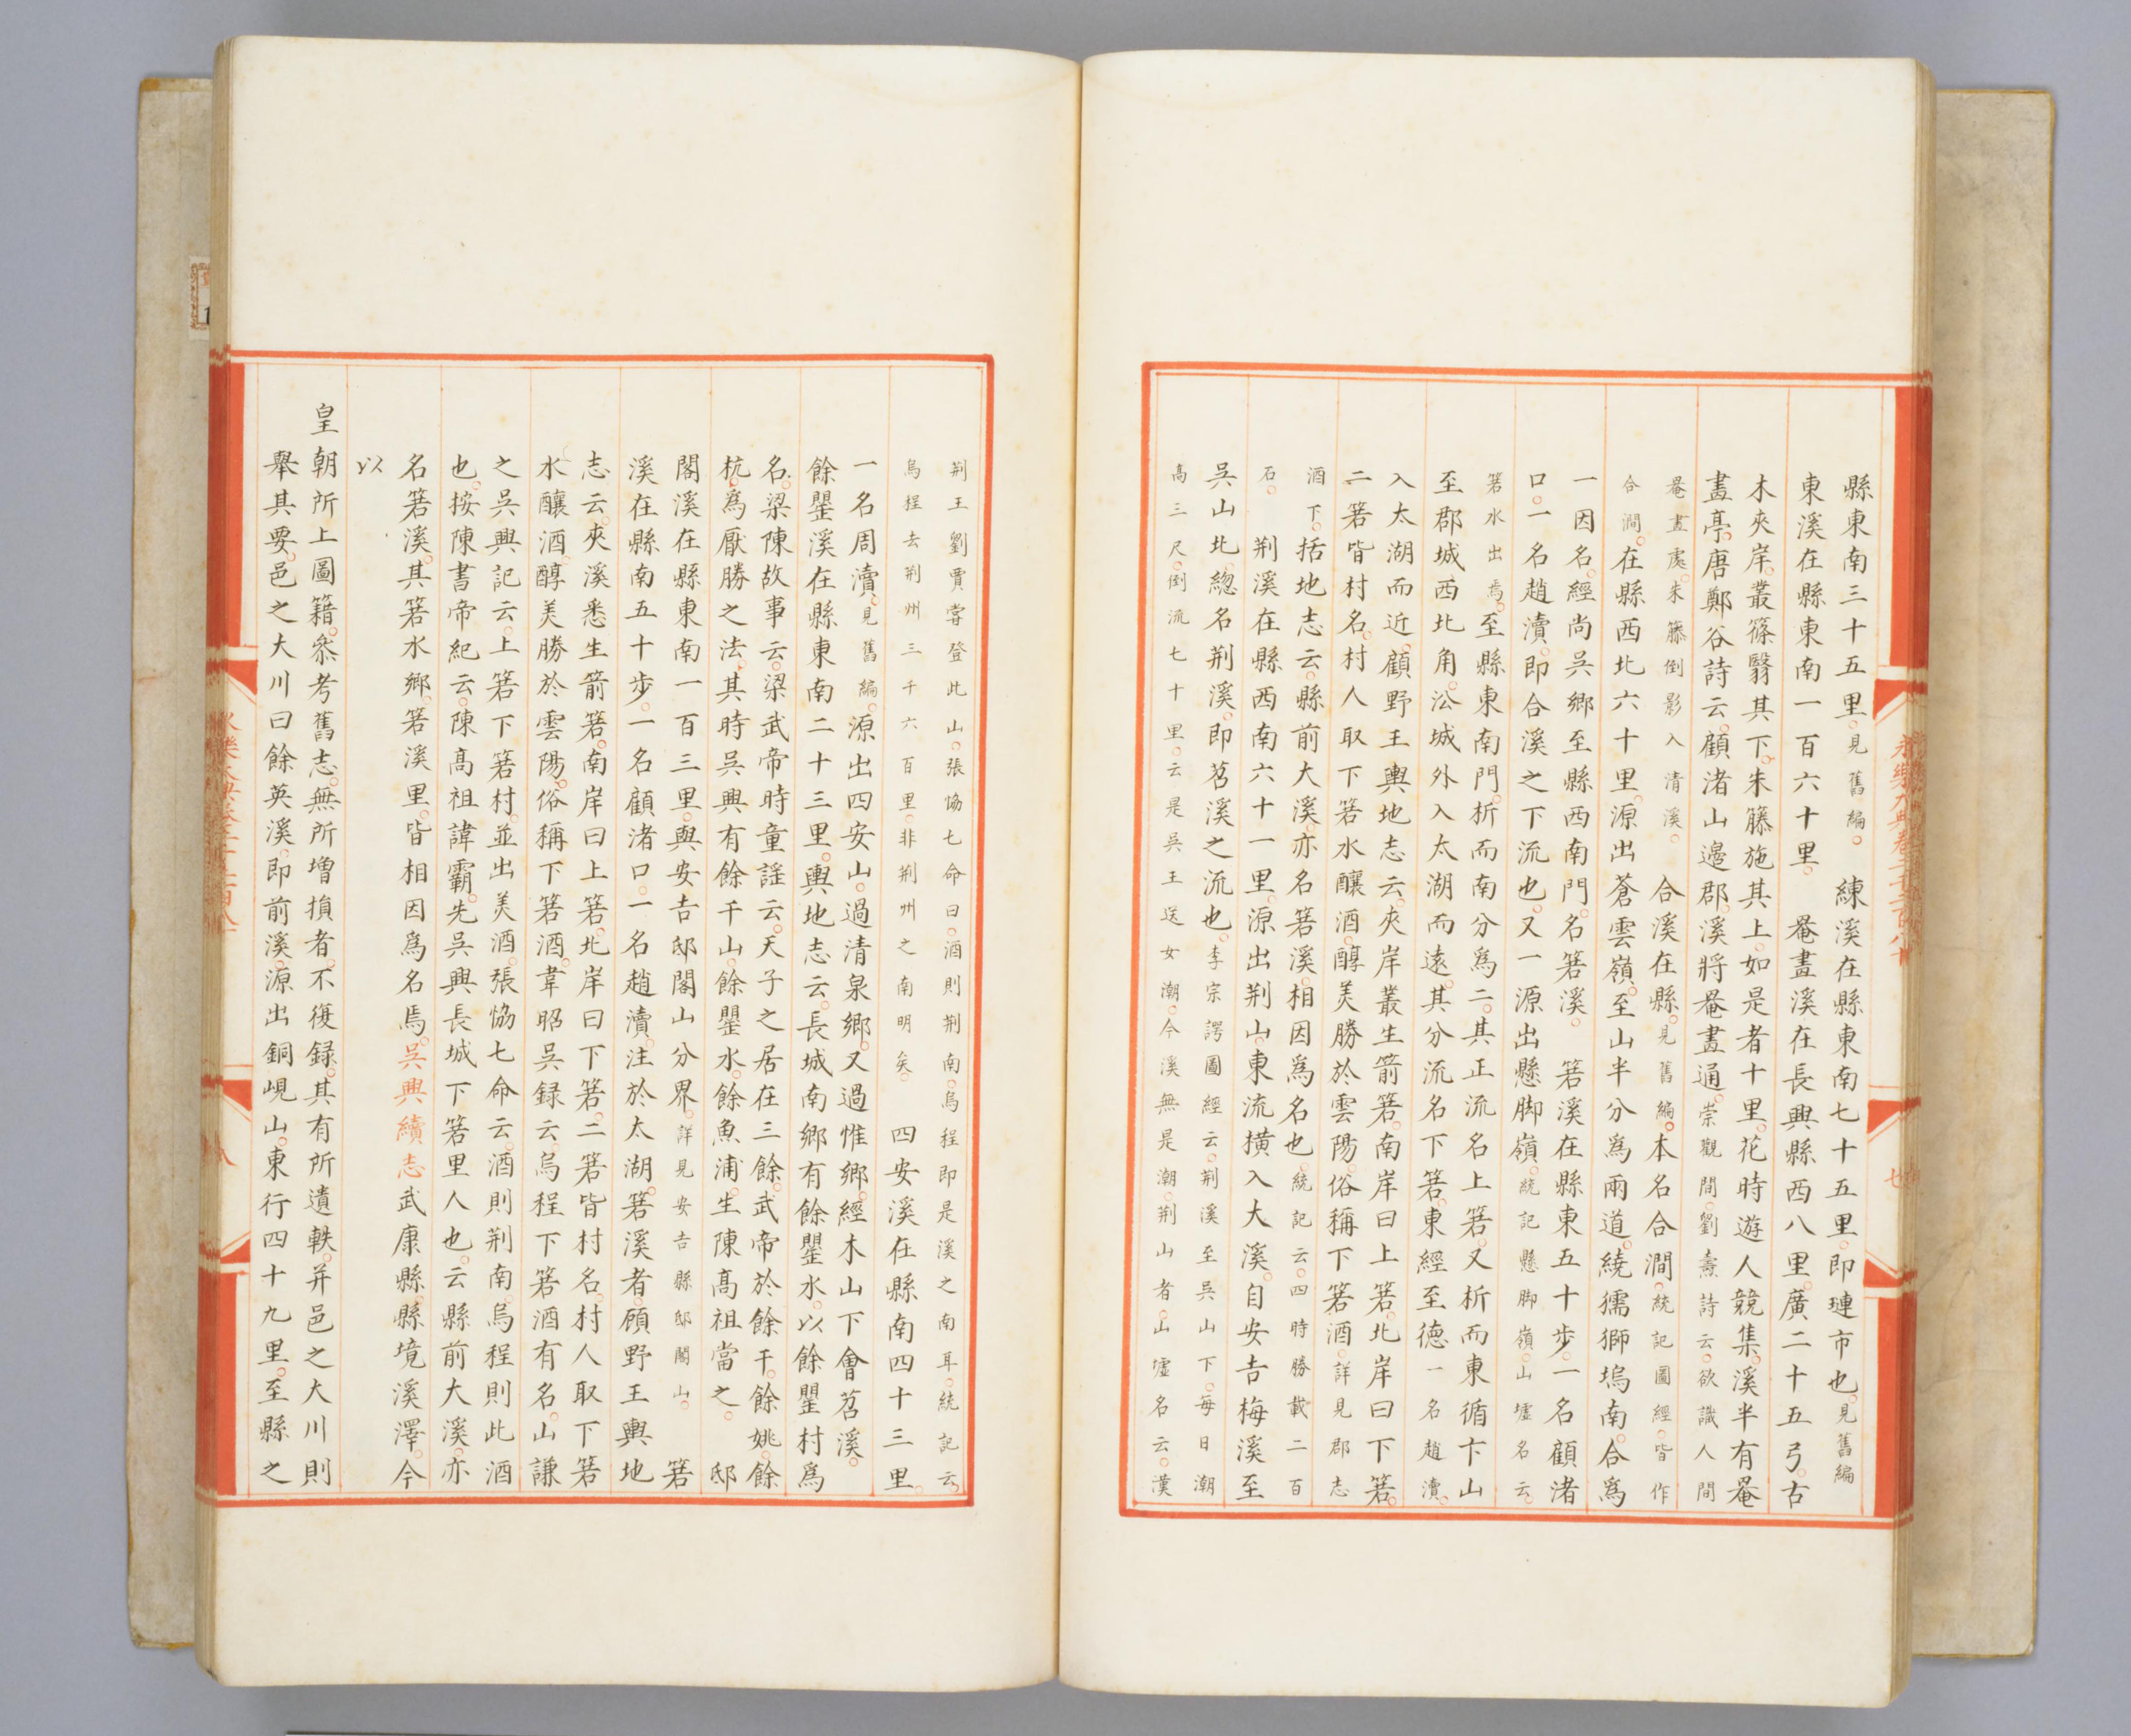 縣東南三十五里。見舊編。 練溪在縣東南七十五里。即璉市也。見舊編
東溪在縣東南一百六十里。 罨畫溪在長興縣西八里。廣二十五弓。古
木夾岸。叢篠翳其下。朱籐施其上。如是者十里。花時遊人競集。溪半有罨
畫亭。唐鄭谷詩云。顧渚山邊郡。溪將罨畫通。崇觀間。劉燾詩云。欲識人間
罨畫處。朱籐倒影入清溪。 合溪在縣。見舊編。本名合澗。統記圖經。皆作
合澗。在縣西北六十里。源出蒼雲嶺。至山半分爲兩道。繞獳獅塢南。合爲
一因名。經尚吳鄉至縣西南門。名箬溪。 箬溪在縣東五十步。一名顧渚
口。一名趙瀆。即合溪之下流也。又一源出懸脚嶺。統記懸脚嶺。山墟名云。
箬水出焉。至縣東南門。析而南分爲二。其正流名上箬。又析而東循卞山
至郡城西北角。㳂城外入太湖而遠。其分流名下箬。東經至德一名趙瀆。
入太湖而近。顧野王輿地志云。夾岸叢生箭箬。南岸曰上箬。北岸曰下箬。
二箬皆村名。村人取下箬水釀酒。醇美勝於雲陽。俗稱下箬酒。詳見郡志
酒下。括地志云。縣前大溪。亦名箬溪。相因爲名也。統記云。四時勝載二百
石。 荆溪在縣西南六十一里。源出荆山。東流橫入大溪。自安吉梅溪至
吳山北。總名荆溪。即苕溪之流也。李宗諤圖經云。荆溪至吳山下。每日潮
高三尺。倒流七十里。云是吳王送女潮。今溪無是潮。荆山者。山墟名云。漢
荆王劉賈嘗登此山。張協七命曰。酒則荆南。烏程即是溪之南耳。統記云。
烏程去荆州三千六百里。非荆州之南明矣。 四安溪在縣南四十三里。
一名周瀆。見舊編。源出四安山。過清泉鄉。又過惟鄉。經木山下會苕溪。
餘罌溪在縣東南二十三里。輿地志云。長城南鄉有餘罌水。以餘罌村爲
名。梁陳故事云。梁武帝時童謡云。天子之居在三餘。武帝於餘干。餘姚。餘
杭。爲厭勝之法。其時吳興有餘干山。餘罌水。餘魚浦。生陳高祖當之。 邸
閣溪在縣東南一百三里。與安吉邸閣山分界。詳見安吉縣邸閣山。 箬
溪在縣南五十步。一名顧渚口。一名趙瀆。注於太湖。箬溪者。顧野王輿地
志云。夾溪悉生箭箬。南岸曰上箬。北岸曰下箬。二箬皆村名。村人取下箬
水釀酒。醇美勝於雲陽。俗稱下箬酒。韋昭吳録云。烏程下箬酒有名。山謙
之吳興記云。上箬下箬村。並出美酒。張協七命云。酒則荆南。烏程則此酒
也。按陳書帝紀云。陳高祖諱霸。先吳興長城下箬里人也。云縣前大溪。亦
名箬溪。其箬水鄉。箬溪里。皆相因爲名焉。吳興續志武康縣。縣境溪澤。今
以
皇朝所上圖籍。叅考舊志。無所增損者。不復録。其有所遺軼。并邑之大川則
舉其要。邑之大川曰餘英溪。即前溪。源出銅峴山。東行四十九里。至縣之